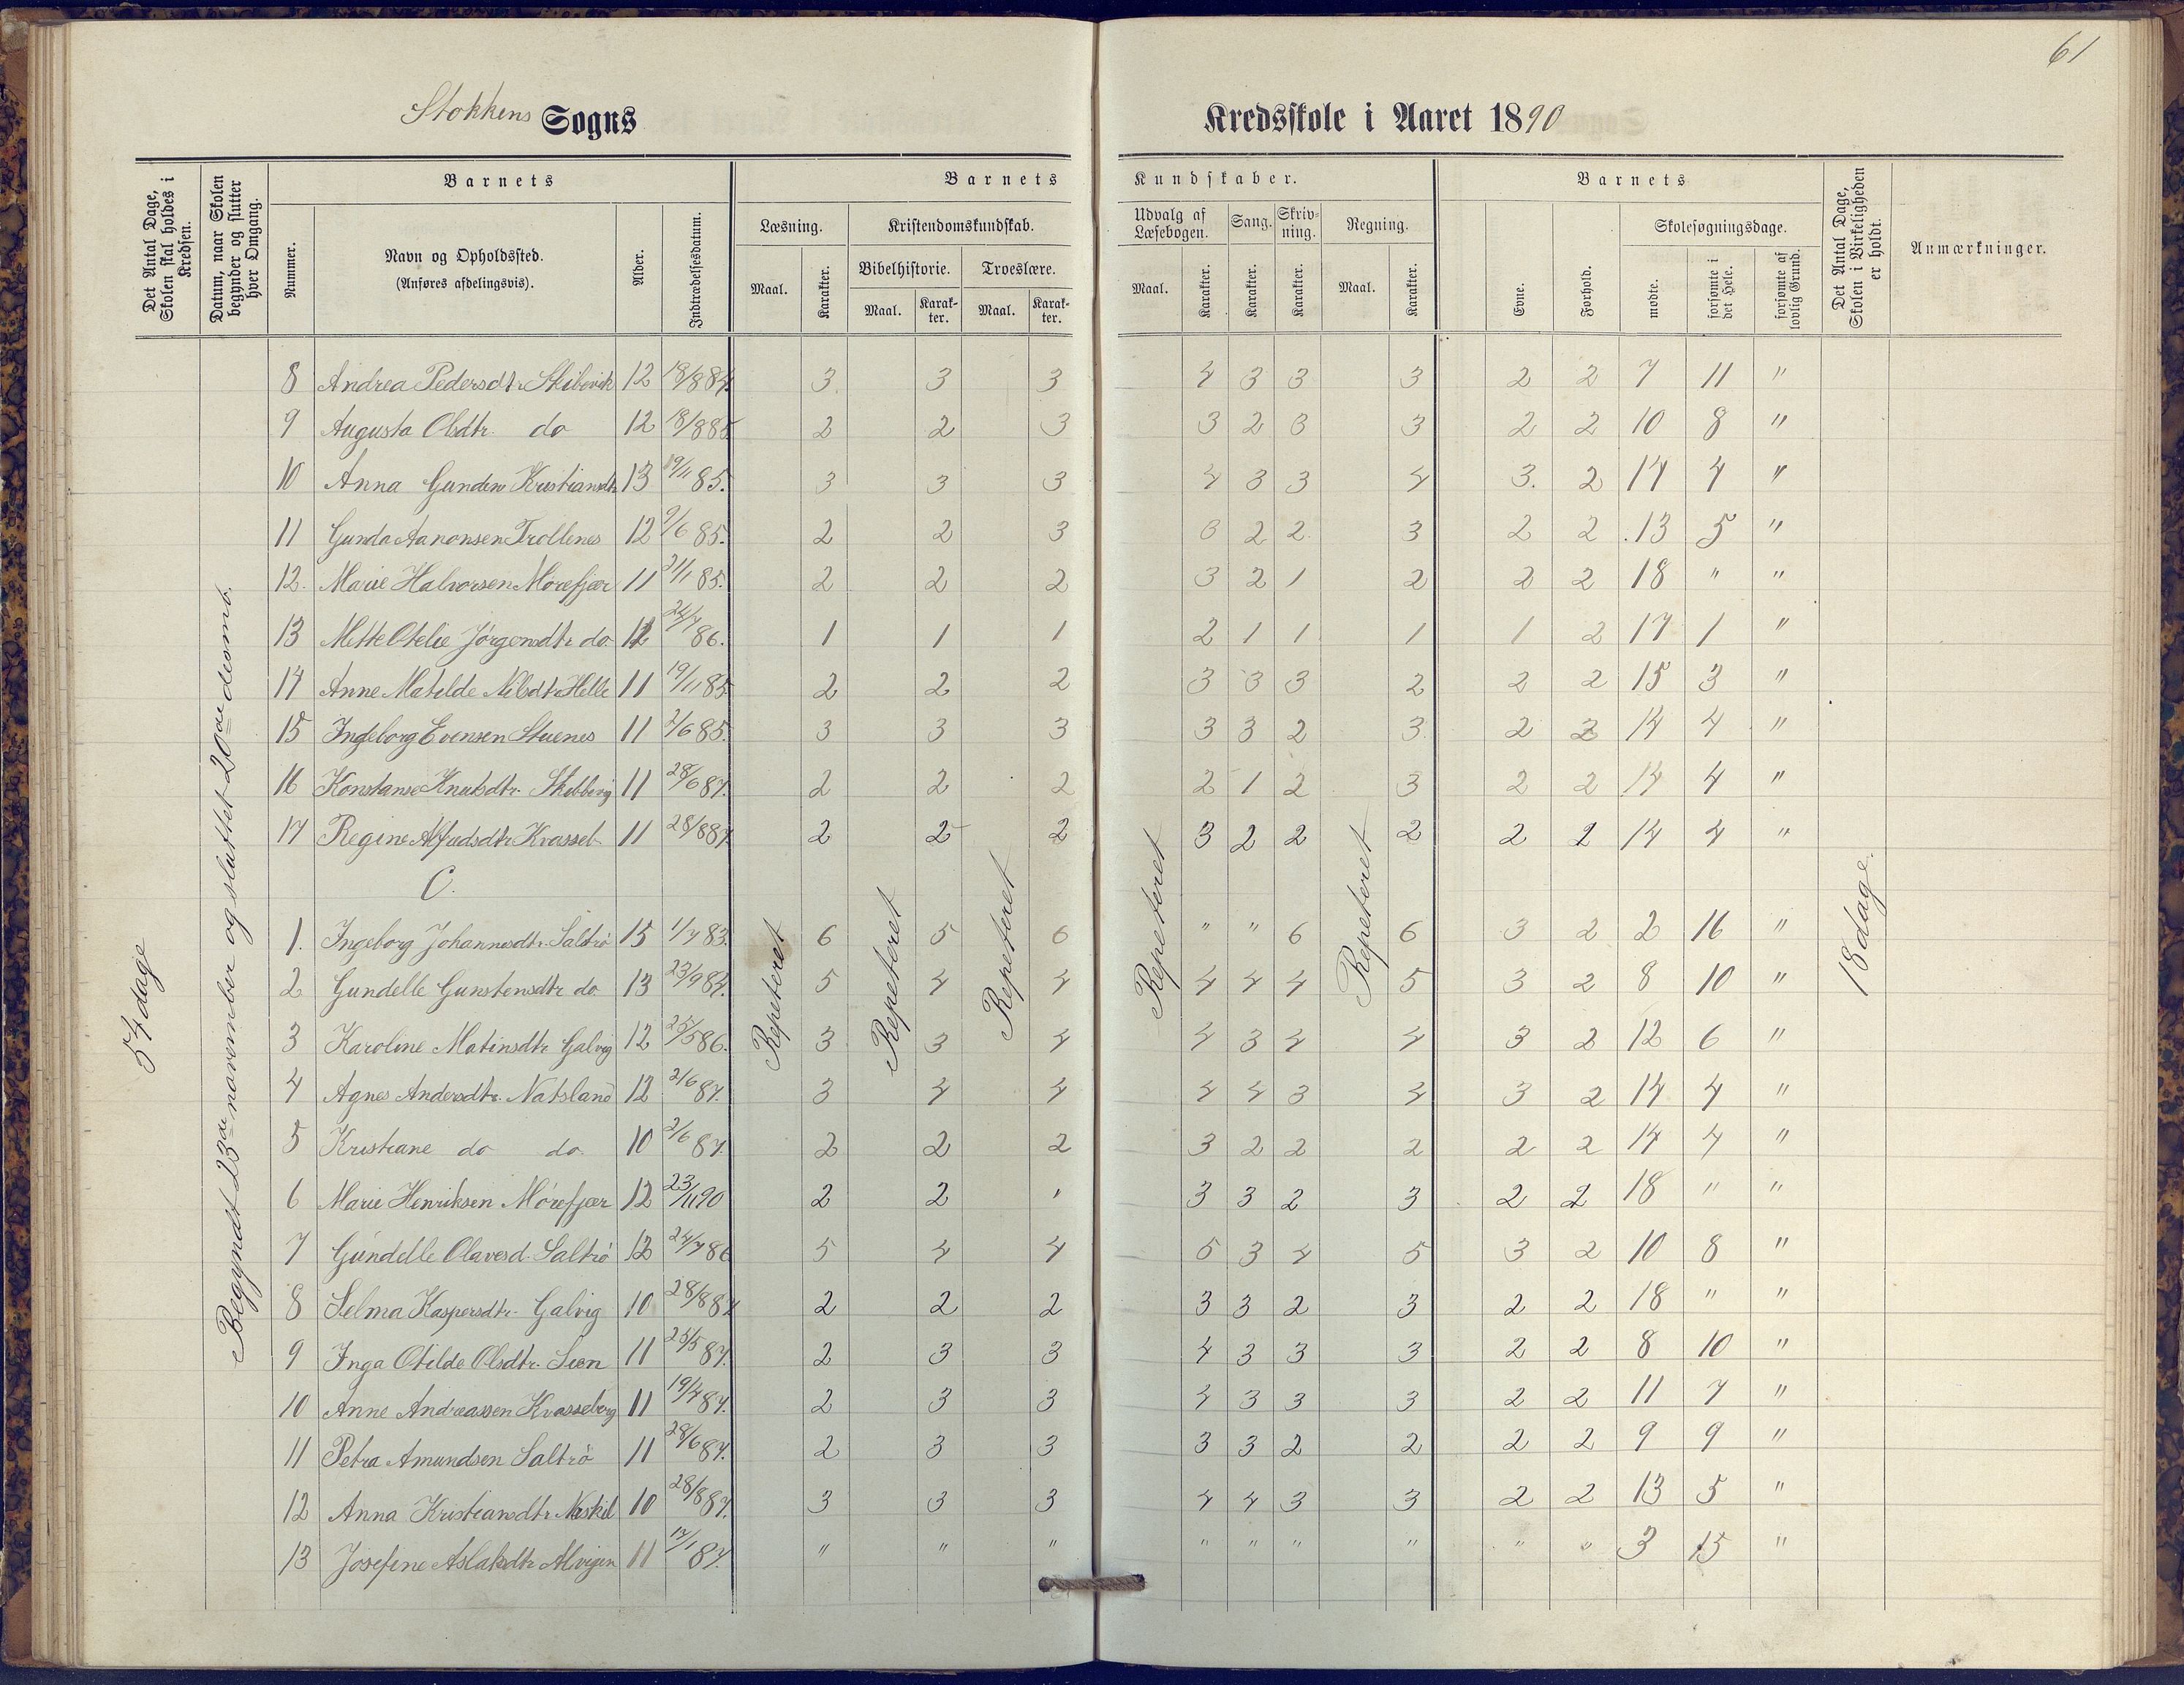 61
Stokkens Sogns Kredsskole i Aaret 1890
Det Antal Dage, Skolen skal holdes i Kredsen.
Datum, naar Skolen begynder og slutter hver Omgang.
Barnets
Nummer.
Navn og Opholdssted.
(Anføres afdelingsvis).
Alder.
Indtrædelsesdatum.
Barnets Kundskaber.
Læsning.
Maal.
Karakter.
Kristendomskundskab.
Bibelhistorie.
Maal.
Karakter.
Troeslære.
Maal.
Karakter.
Udvalg af Læsebogen.
Maal.
Karakter.
Sang.
Karakter.
Skrivning.
Karakter.
Regning.
Maal.
Karakter.
Barnets
Evne.
Forhold.
Skolesøgningsdage.
mødte.
forsømte i det Hele.
forsømte af lovlig Grund.
Det Antal Dage, Skolen i Virkeligheden er holdt.
Anmærkninger.
54 dage
Begyndt 23de november og sluttet 20de desemb.
8 Andrea Pedersdtr. Skibevik 12 18/8 84. 3 3 3 4 3 3 3 2 2 7 11 "
9 Augusta Olsdtr. do 12 18/8 85 2 2 3 3 2 3 3 2 2 10 8 "
10 Anna Gunders Kristiansdtr 13 19/11 85. 3 3 3 4 3 3 4 3. 2 14 4 "
11 Gunda Aanonsen Trollenes 12 9/6 85. 2 2 3 3 2 2 3 2 2 13 5 "
12. Marie Halvorsen Mörefjær 11 21/1 85. 2 2 2 3 2 1 2 2 2 18 " "
13 Mette Otelie Jörgensdtr do. 12 24/7 86. 1 1 1 2 1 1 1 1 2 17 1 "
14 Anne Matilde Nilsdtr Helle 11 19/11 85 2 2 2 3 3 3 2 2 2 15 3 "
15 Ingeborg Evensen Stuenes 11 2/6 85. 3 3 3 3 3 2 3 2 2 14 4 "
16 Konstanse Knutsdtr. 11 28/6 87. 2 2 2 2 1 2 3 2 2 14 4 "
17 Regine Kvassel 11 28/8 87. 2 2 2 3 2 2 2 2 2 14 4 "
C.
1. Ingeborg Johannesdtr. Saltrö 15 1/7 83. 6 5 6 " " 6 6 3 2 2 16 "
2 Gundelle Gunstensdtr do. 13 23/9 84. 5 4 4 4 4 4 5 3 2 8 10 "
3 Karoline Matinsdtr Galvig 12 25/5 86. 3 3 4 4 3 4 4 3 2 12 6 "
4 Agnes Andersdtr. Natsland 12 2/6 87. 3 4 4 4 4 3 4 3 2 14 4 "
5 Kristiane do do. 10 2/6 87. 2 2 2 3 2 2 2 2 2 14 4 "
6 Marie Henriksen Mörefjær 12 23/11 90 2 2 " 3 3 2 3 2 2 18 " "
7 Gundelle Olavesd. Saltrö 12 24/7 86 5 4 4 5 3 4 5 3 2 10 8 "
8 Selma Kaspersdtr. Galvig 10 28/8 87 2 2 2 3 3 2 3 2 2 18 " "
9 Inga Otilde Olsdtr. Suen 11 25/5 87. 2 3 3 4 3 3 3 2 2 8 10 "
10 Anne Andreassen Kvasseberg 11 19/4 87. 2 3 3 4 3 3 3 2 2 11 7 "
11 Petra Amundsen Saltrö 11 28/6 87. 2 3 3 3 3 2 2 2 2 9 9 "
12 Anna Kristiansdtr Neskil 10 28/8 87. 3 3 3 4 4 3 3 2 2 13 5 "
13 Josefine Aslaksdtr 11 17/1 87. " " " " " " " " " 3 15 "
Repeteret
Repeteret
Repeteret
Repeteret
Repeteret
18 dage.